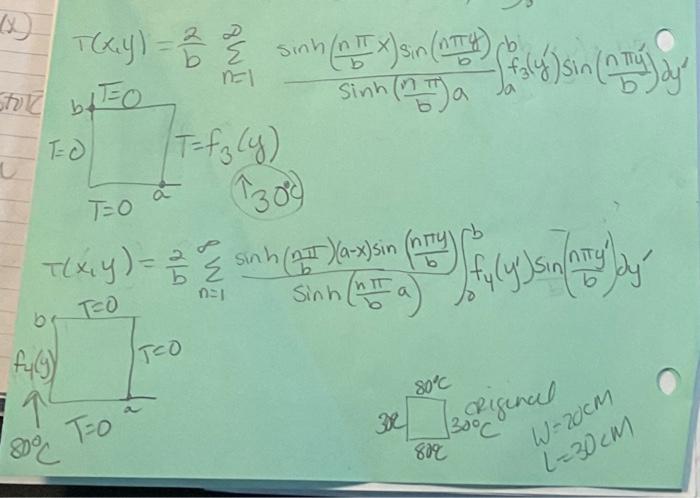 (x)
T(x,y) = 2/b ∞Σn=1 sinh(nπ/b x) sin(nπy/b) / sinh(nπ/b)a ∫ab f3(y') sin(nπy'/b) dy'
b T=0
T=0 T=f3(y)
↑30°C
T=0 a
T(x,y) = 2/b ∞Σn=1 sinh(nπ/b)(a-x) sin(nπy/b) / sinh(nπ/b a) ∫0b f4(y') sin(nπy'/b) dy'
b T=0
f4(y) T=0
↑
80°C T=0 a
80°C
30°C original
80°C
W=20cm
L=30cm